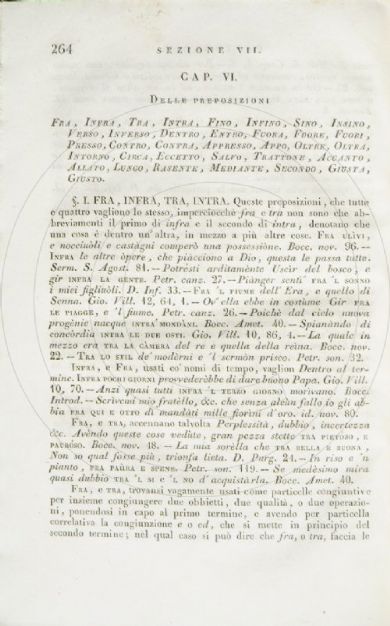 264 SEZIONE VII.
CAP. VI.
DELLE PREPOSIZIONI
FRA, INFRA, TRA, INTRA, FINO, INFINO, SINO, INSINO,
VERSO, INVERSO, DENTRO, ENTRO, FUORA, FUORE, FUORI,
PRESSO, CONTRO, CONTRA, APPRESSO, APPO, OLTRE, OLTRA,
INTORNO, CIRCA, ECCETTO, SALVO, TRATTONE, ACCANTO,
ALLATO, LUNGO, RASENTE, MEDIANTE, SECONDO, GIUSTA,
GIUSTO.
§. I. FRA, INFRA, TRA, INTRA. Queste preposizioni, che tutte
e quattro vagliono lo stesso, imperciocchè fra e tra non sono che ab-
breviamenti il primo di infra e il secondo di intra, denotano che
una cosa è dentro un'altra, in mezzo a più altre cose. FRA ulivi,
e nocciuòli e castagni comperò una possessione. Bocc. nov. 96.—
INFRA le altre òpere, che piacciono a Dio, questa le passa tutte.
Serm. S. Agost. 84.—Potrèsti arditamènte Uscir del bosco, e
gir INFRA LA GENTE. Petr. canz. 27.—Piànger sentì FRA 'L SONNO
i mièi figliuòli. D. Inf. 33.—FRA 'L FIUME dell'Era, e quello di
Senna. Gio. Vill. 12, 64, 4.—Ov'ella ebbe in costume Gir FRA
LE PIAGGE, e 'l fiume. Petr. canz. 26.—Poichè dal cielo nuova
progènie nacque INTRA' MONDÀNI. Bocc. Amet. 40.—Spianàndo di
concòrdia INTRA LE DUE OSTI. Gio. Vill. 10, 86, 4.—La quale in
mezzo era TRA LA CÀMERA del re e quella della reina. Bocc. nov.
22.—TRA LO STIL de' modèrni e 'l sermòn prisco. Petr. son. 32.
INFRA, e FRA, usati co' nomi di tempo, vaglion Dentro al ter-
mine. INFRA POCHI GIORNI provvederèbbe di dare buono Papa. Gio. Vill.
10, 70.—Anzi quasi tutti INFRA 'L TERZO GIORNO morivano. Bocc.
Introd.—Scrivemi mio fratèllo, &c. che senza alcùn fallo io gli ab-
bia FRA QUI E OTTO dì mandàti mille fiorini d'oro. id. nov. 80.
FRA, e TRA, accennano talvolta Perplessità, dubbio, incertezza
&c. Avèndo queste cose vedute, gran pezzo stette TRA PIETOSO, E
PAURÒSO. Bocc. nov. 48.—La mia sorella che TRA BELLA E BUONA,
Non so qual fosse più, trionfa lieta. D. Purg. 24.—In riso e 'n
pianto, FRA PAÙRA E SPENE. Petr. son. 119.—Se medèsimo mira
quasi dubbio TRA 'L SÌ e 'L NO d'acquistàrla. Bocc. Amet. 40.
FRA, e TRA, trovansi vagamente usati come particelle congiuntive
per insieme congiungere due obbietti, due qualità, o due operazio-
ni, ponendosi in capo al primo termine, e avendo per particella
correlativa la congiunzione e o ed, che si mette in principio del
secondo termine; nel qual caso si può dire che fra, o tra, faccia le